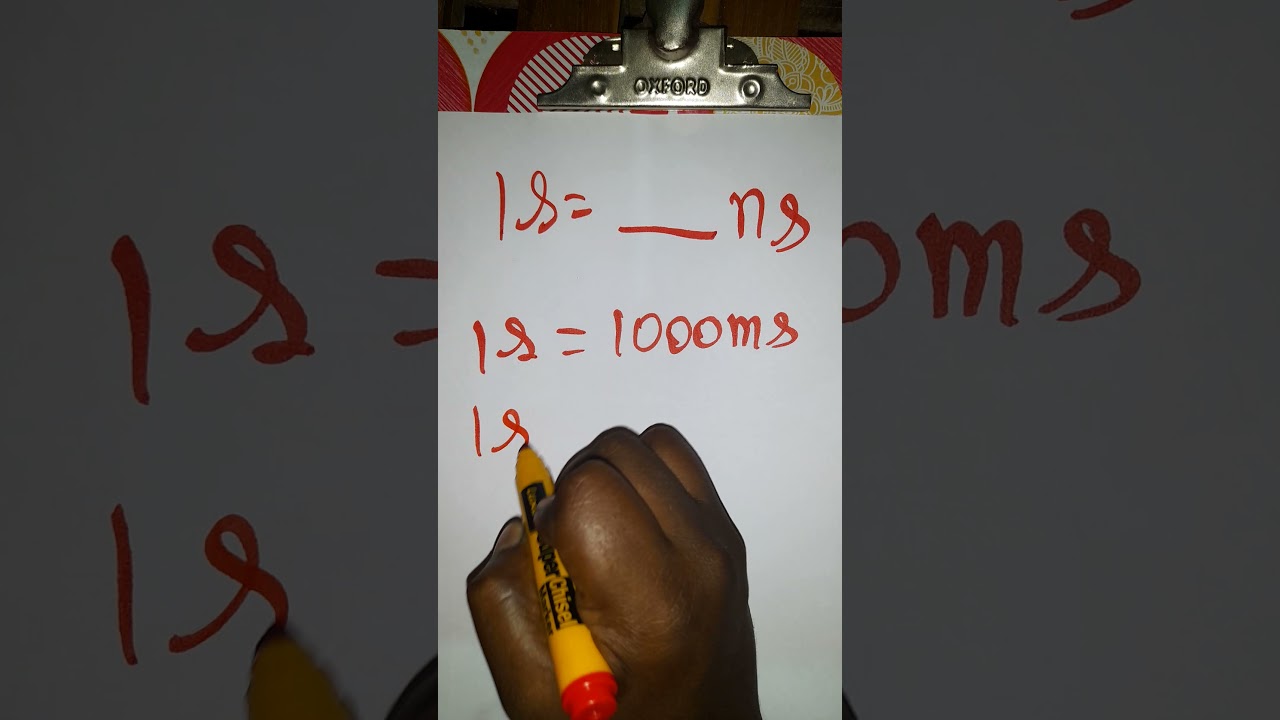 OXFORD
1s = __ ns
1s = 1000ms
1s
Super Chisel